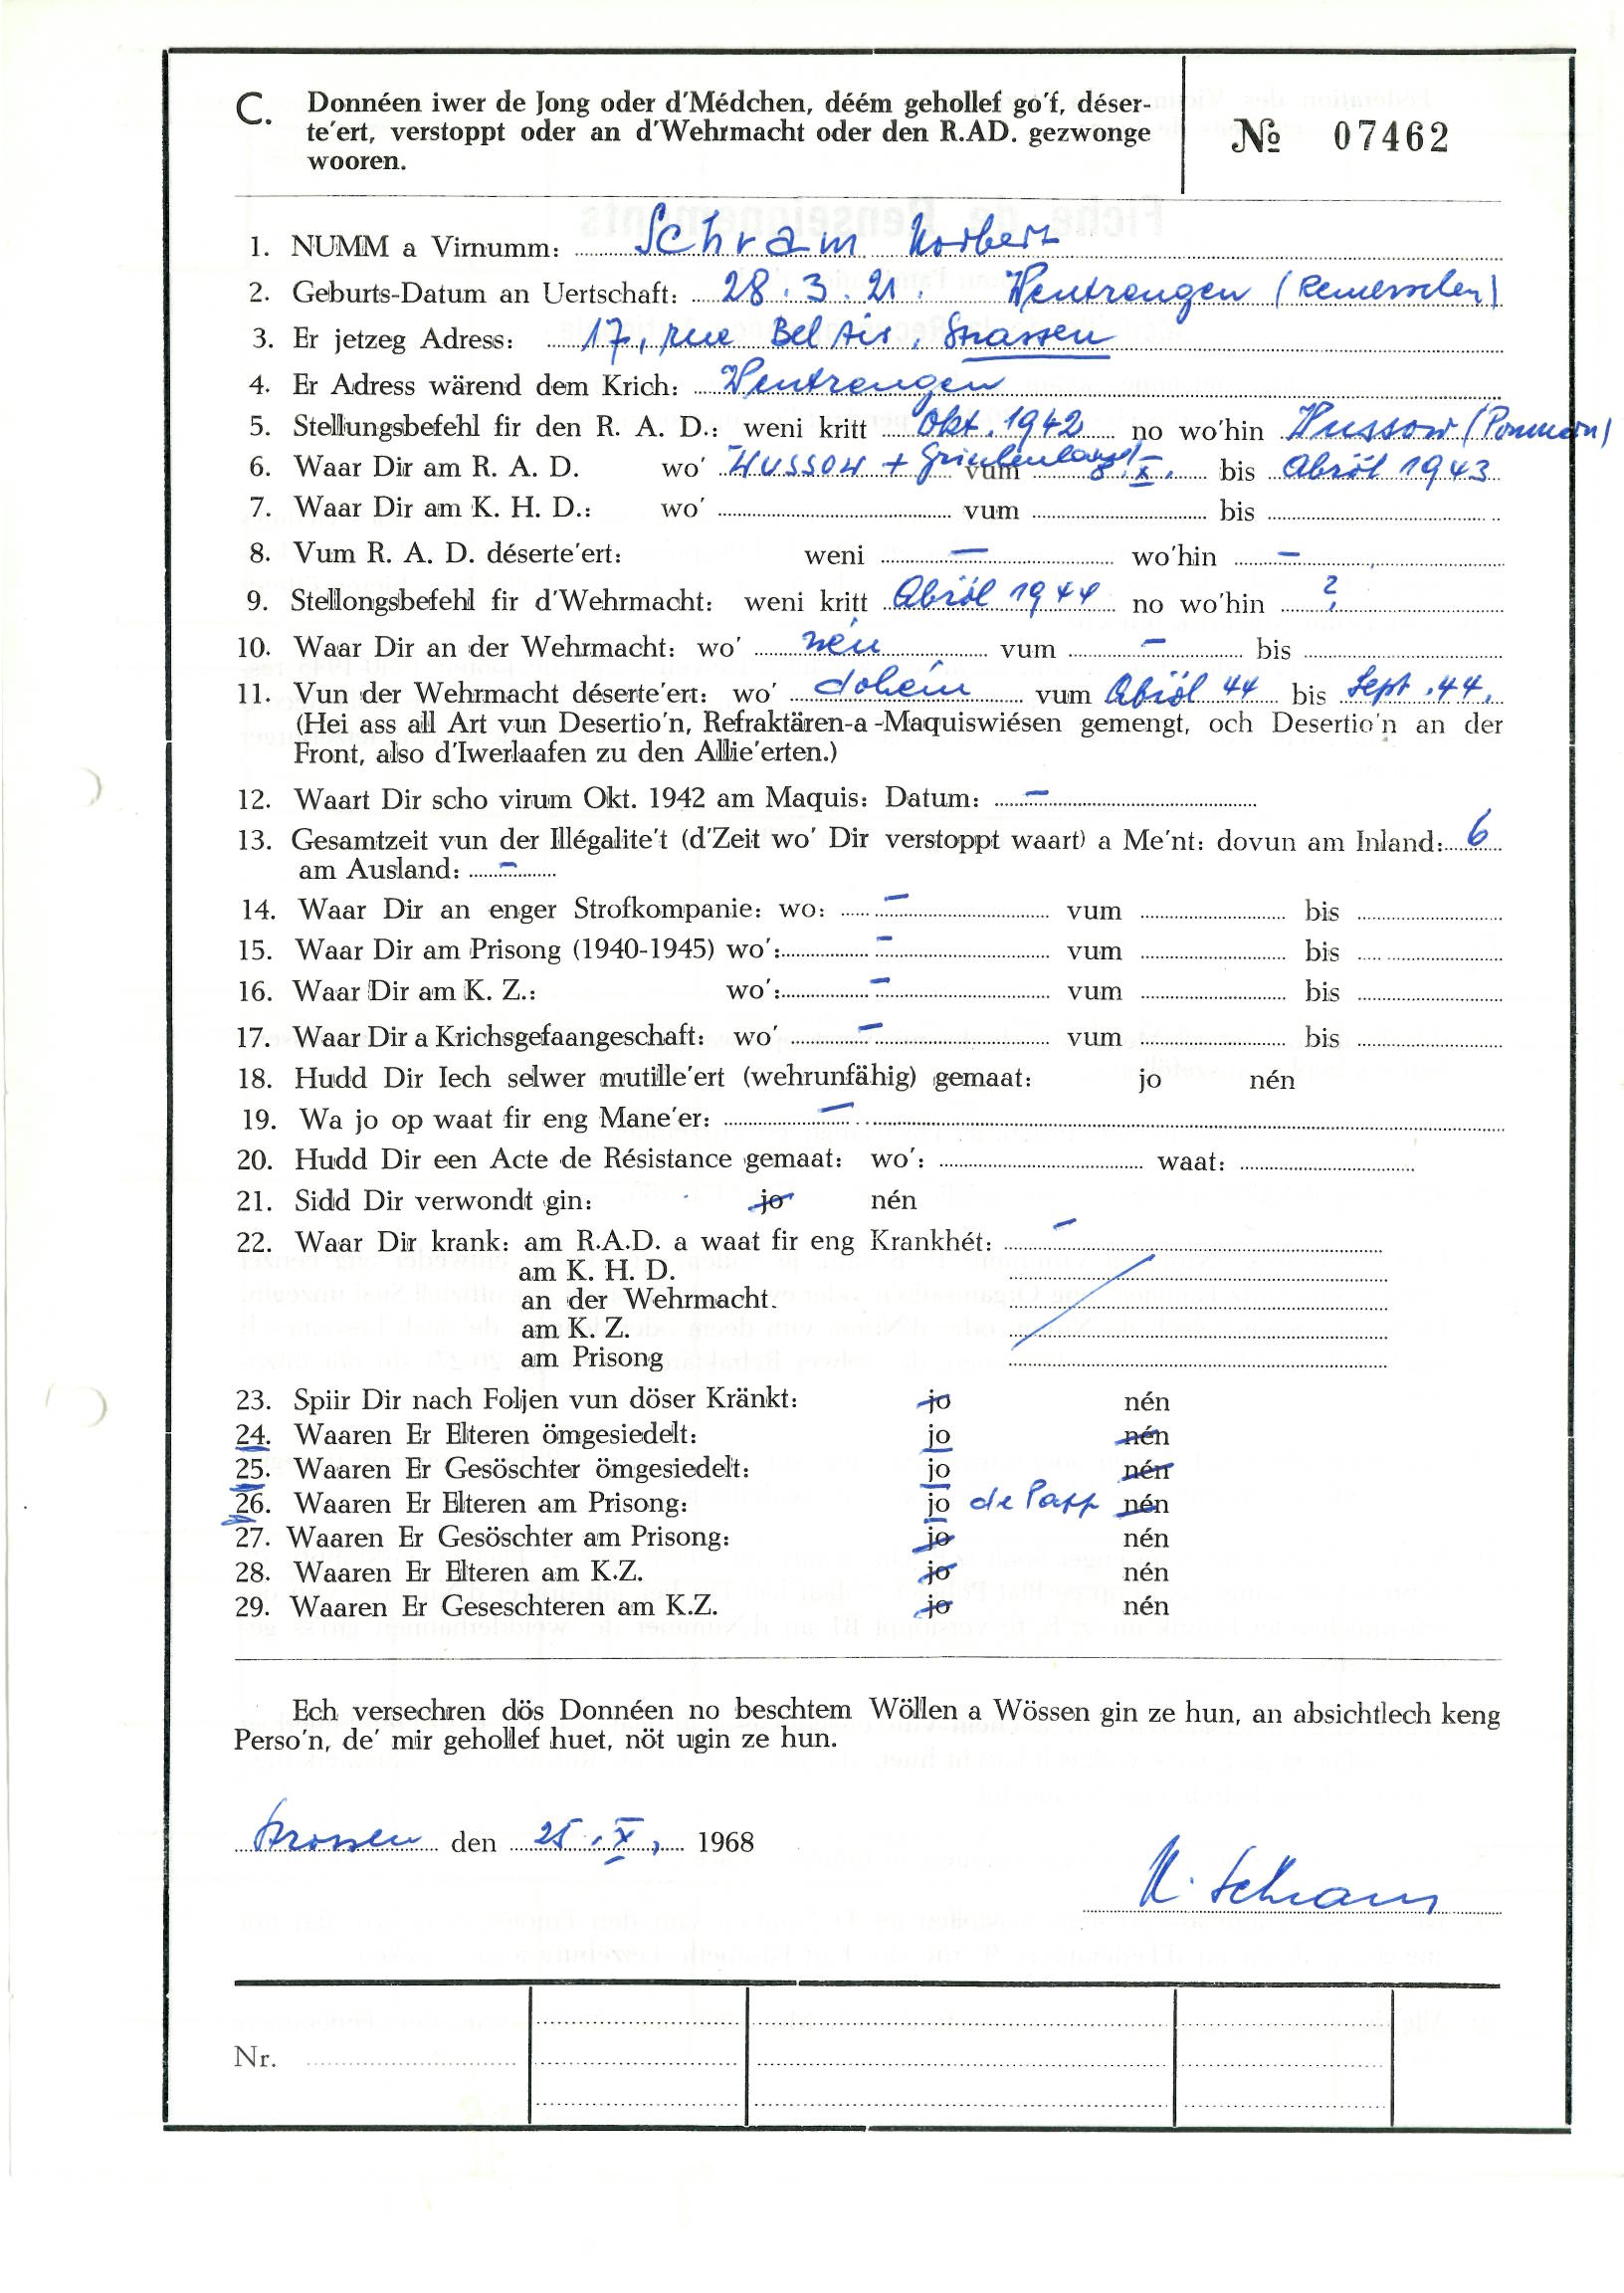 C. Donnéen iwer de Jong oder d'Médchen, déém gehollef go'f, déser-
te'ert, verstoppt oder an d'Wehrmacht oder den R.AD. gezwonge
wooren.
№ 07462
1. NUMM a Virnumm: Schram Norbert
2. Geburts-Datum an Uertschaft: 28.3.21. Wentrengen (Remerschen)
3. Er jetzeg Adress: 17, rue Bel Air, Strassen
4. Er Adress wärend dem Krich: Wentrengen
5. Stellungsbefehl fir den R. A. D.: weni kritt Okt. 1942 no wo'hin Wussow (Pommern)
6. Waar Dir am R. A. D. wo' Wussow + vum 8.X. bis Abröl 1943
7. Waar Dir am K. H. D.: wo' vum bis
8. Vum R. A. D. déserte'ert: weni — wo'hin —
9. Stellongsbefehl fir d'Wehrmacht: weni kritt Abröl 1944 no wo'hin ?
10. Waar Dir an der Wehrmacht: wo' néu vum — bis
11. Vun der Wehrmacht déserte'ert: wo' dohém vum Abröl 44 bis Sept. 44.
(Hei ass all Art vun Desertio'n, Refraktären-a-Maquiswiésen gemengt, och Desertio'n an der
Front, also d'Iwerlaafen zu den Allie'erten.)
12. Waart Dir scho virum Okt. 1942 am Maquis: Datum: —
13. Gesamtzeit vun der Illégalite't (d'Zeit wo' Dir verstoppt waart) a Me'nt: dovun am Inland: 6
am Ausland: —
14. Waar Dir an enger Strofkompanie: wo: — vum bis
15. Waar Dir am Prisong (1940-1945) wo': — vum bis
16. Waar Dir am K. Z.: wo': — vum bis
17. Waar Dir a Krichsgefaangeschaft: wo' — vum bis
18. Hudd Dir Iech selwer mutille'ert (wehrunfähig) gemaat: jo nén
19. Wa jo op waat fir eng Mane'er: —
20. Hudd Dir een Acte de Résistance gemaat: wo': waat:
21. Sidd Dir verwondt gin: jo nén
22. Waar Dir krank: am R.A.D. a waat fir eng Krankhét: —
am K. H. D.
an der Wehrmacht.
am K. Z.
am Prisong
23. Spiir Dir nach Foljen vun döser Kränkt: jo nén
24. Waaren Er Elteren ömgesiedelt: jo nén
25. Waaren Er Gesöschter ömgesiedelt: jo nén
26. Waaren Er Elteren am Prisong: jo de Papp nén
27. Waaren Er Gesöschter am Prisong: jo nén
28. Waaren Er Elteren am K.Z. jo nén
29. Waaren Er Geseschteren am K.Z. jo nén
Ech versechren dös Donnéen no beschtem Wöllen a Wössen gin ze hun, an absichtlech keng
Perso'n, de' mir gehollef huet, nöt ugin ze hun.
Strossen den 25.X. 1968
N. Schram
Nr.